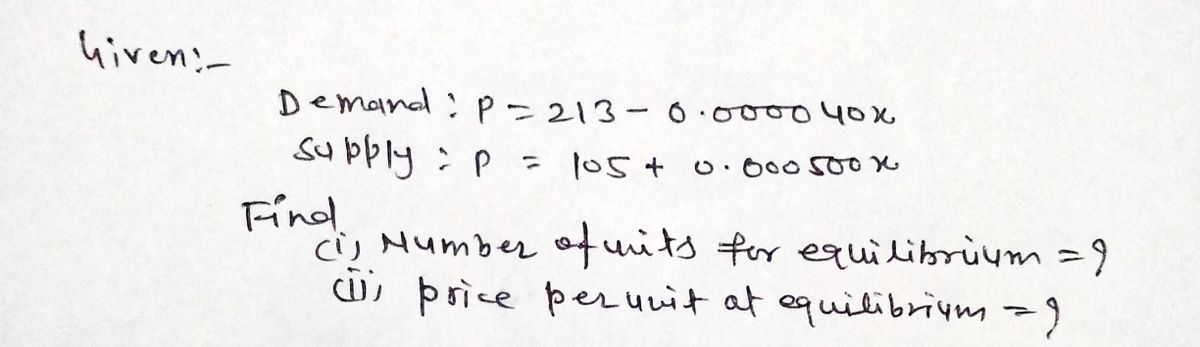 Given:-
Demand : P = 213 - 0.000040x
Supply : P = 105 + 0.000500x
Find
(i) Number of units for equilibrium = ?
(ii) price per unit at equilibrium = ?